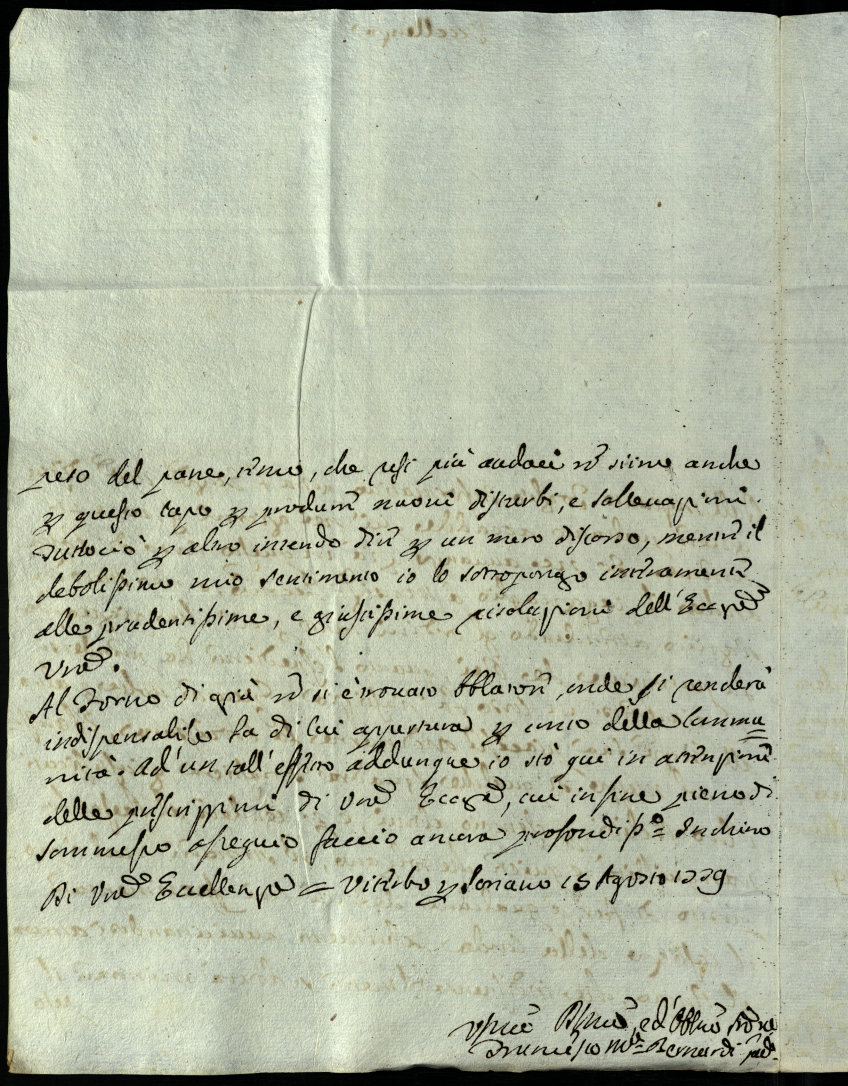 peso del pane, temo, che resi più audaci nõ siino anche
p questo capo p produrre nuovi disturbi, e sollevazioni.
Tuttociò p altro intendo dire p un mero discorso, mentre il
debolissimo mio sentimento io lo sottopongo interamente
alle prudentissime, e giustissime risoluzioni dell'Eccza
Vra.
Al Forno di già nõ si è trovato Oblatore, onde si renderà
indispensabile la di lui appertura p conto della Commu=
nità. Ad'un tall'effetto addunque io stò quì in attenzione
delle prescrizzioni di Vra Eccza, cui infine pieno di
sommesso ossequio faccio ancora profondisso= Inchino
Di Vra Eccellenza = Viterbo p Soriano 15 Agosto 1779
Umo Dmo, ed Obblmo
Francesco Ma= Bernardi